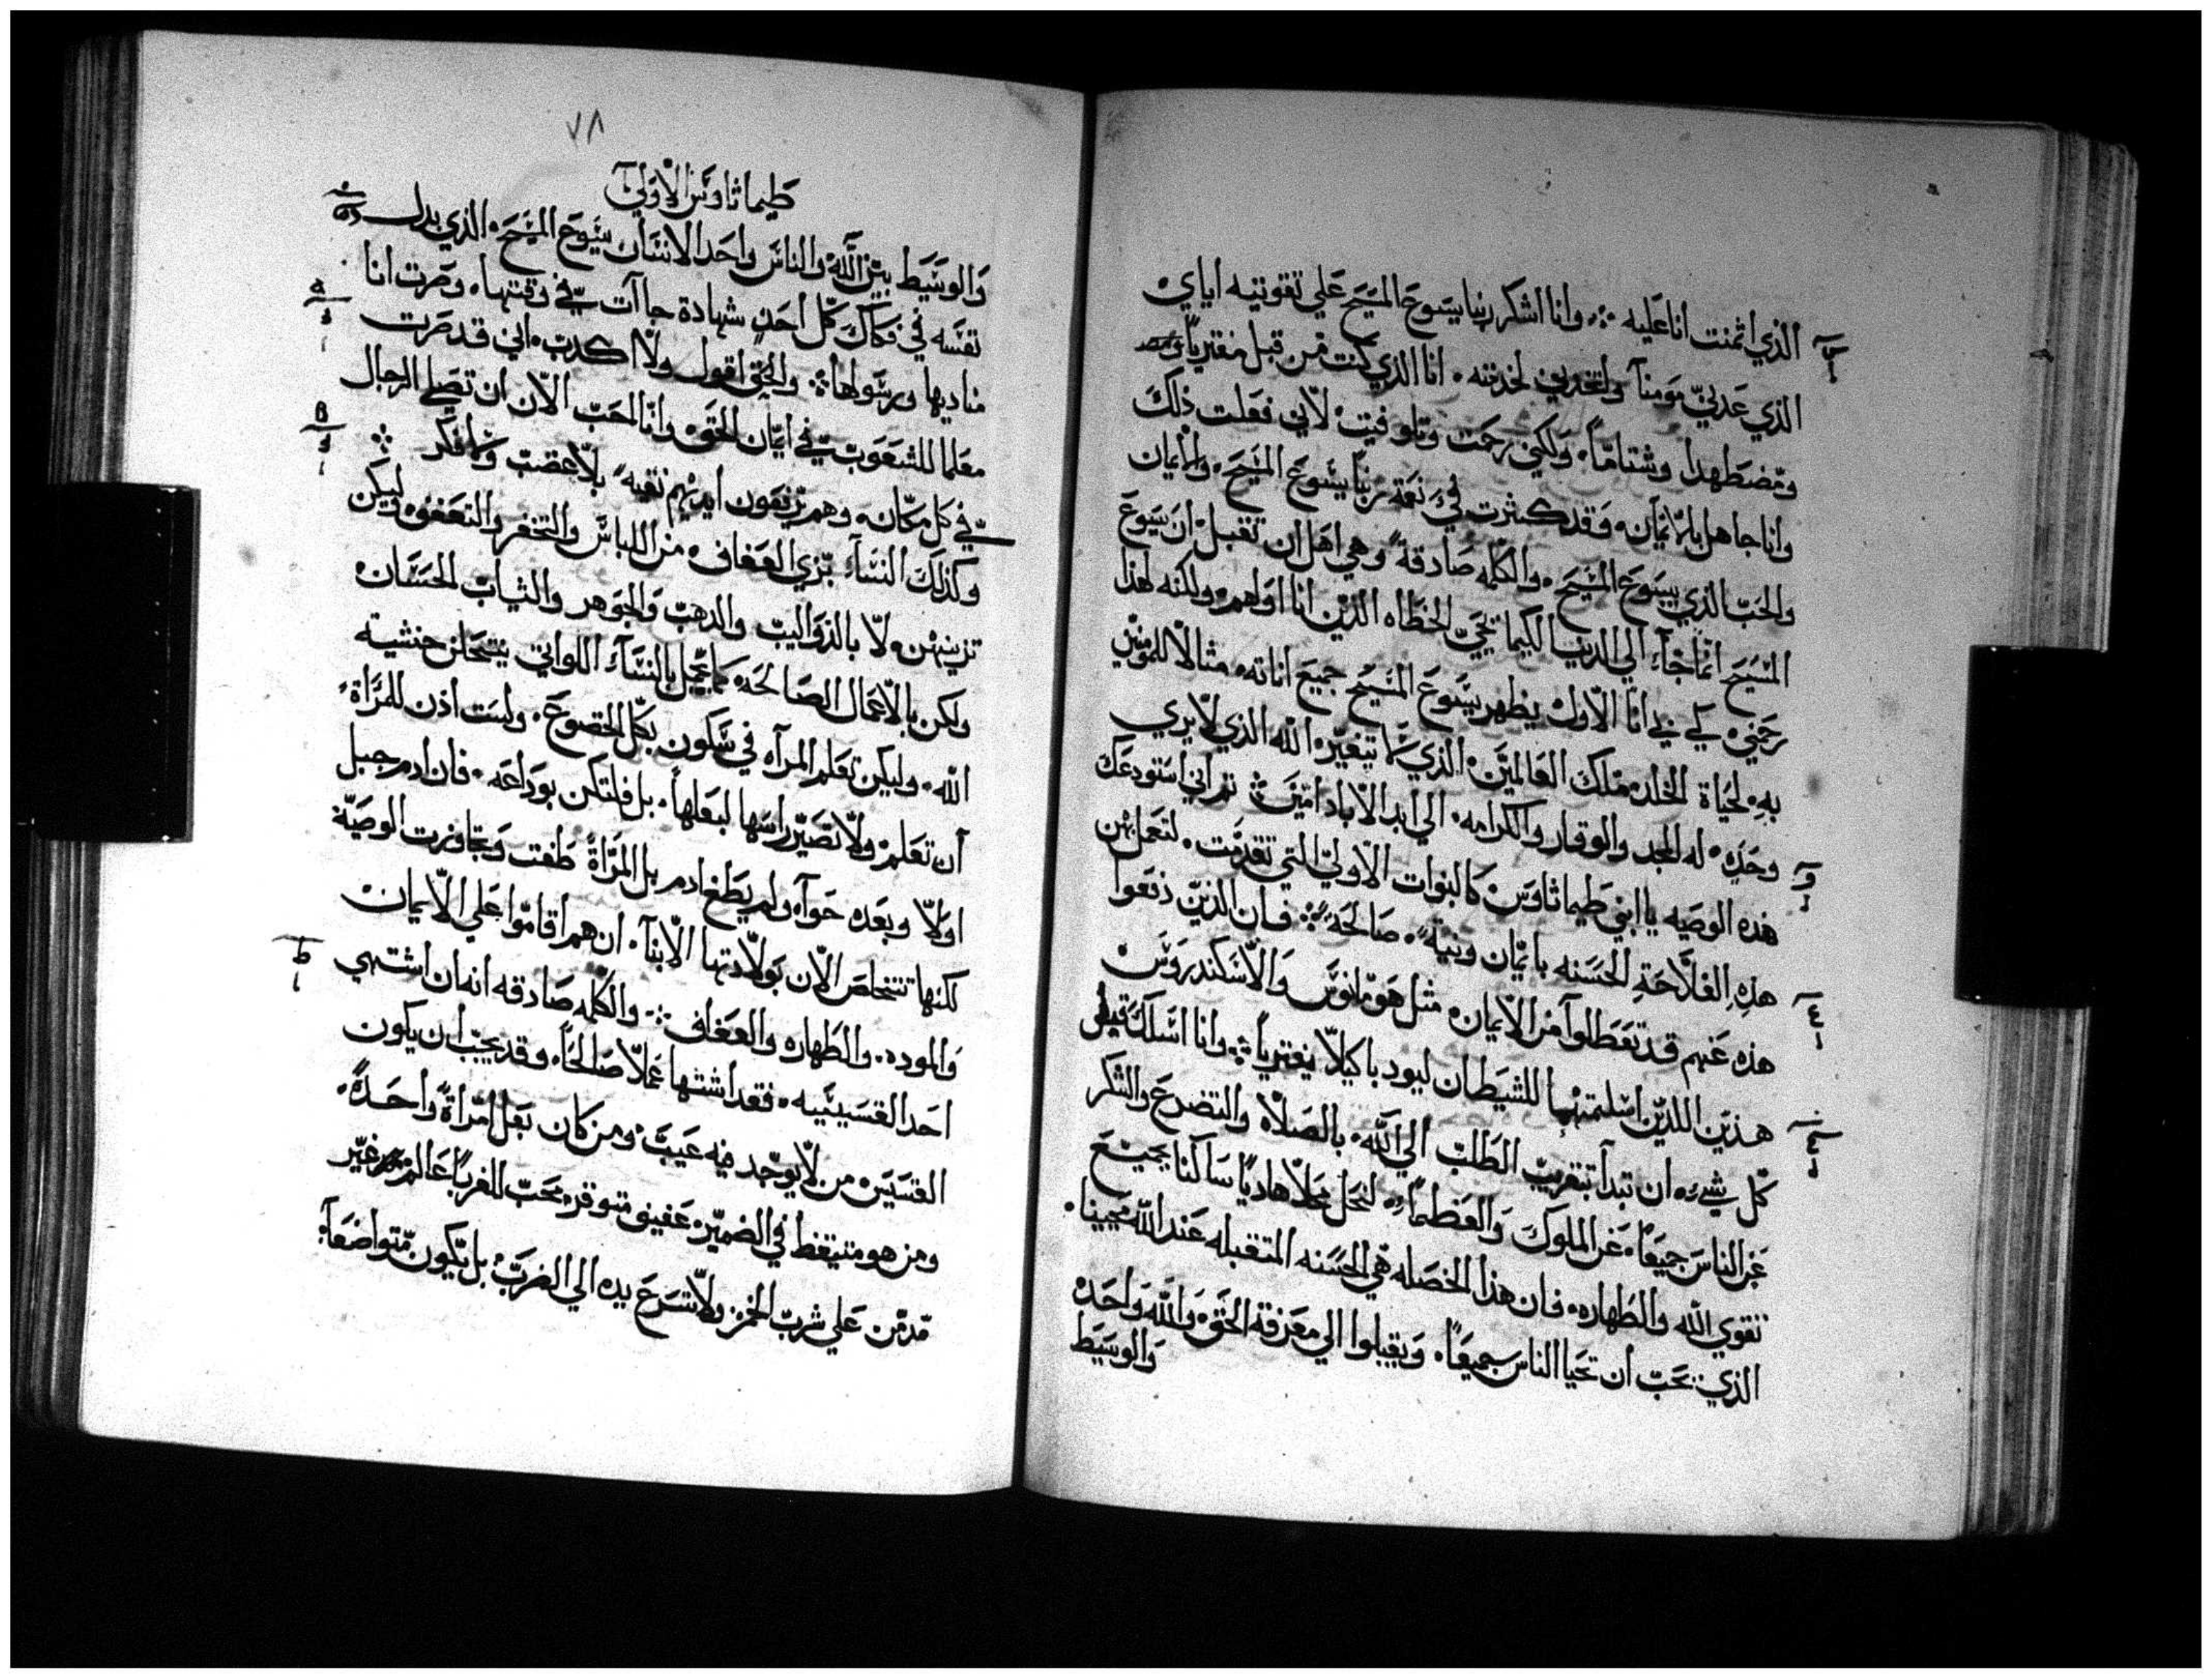 الذي اتمنت انا عليه ❖ وانا اشكر ربنا يسوع المسيح علي تقويتيه اياي
الذي عدني مومنا واتخدني لخدمته. انا الذي كنت من قبل مفتريا
ومضطهدا وشتاما. ولكني رحمت وتلوفيت لاني فعلت ذلك
وانا جاهل بلا ايمان. وقد كثرت في نعمة ربنا يسوع المسيح. والايمان
والحب الذي بيسوع المسيح. والكلمه صادقة وهي اهل ان تقبل ان يسوع
المسيح انما جاء الي الدنيا لكيما يحيي الخطاه الذين انا اولهم. ولكنه لهذا
رحمني. لكي في انا الاول يظهر يسوع المسيح جميع اناته. مثالا للمومنين
به. لحياة الخلد. ملك العالمين. الذي لا يتغير. الله الذي لا يري
وحده. له المجد والوقار والكرامه. الي ابد الاباد امين ❖ ثم اني استودعك
هذه الوصيه يا ابني طيماثاوس كالنبوات الاولي التي تقدمت. لتعمل بهن
هذه الفلاحة الحسنه بايمان ونية. صالحة ❖ فان الذين دفعوا
هذه عنهم قد تعطلوا من الايمان. مثل هومانوس والاسكندروس
هذين اللذين اسلمتهما للشيطان ليودبا كيلا يفتريا ❖ وانا اسلك قبل
كل شيء. ان تبدا بتقريب الطلب الي الله. بالصلاه والتضرع والشكر
عن الناس جميعا. عن الملوك والعظما. لنحل محلا هاديا ساكنا بجميع
تقوي الله والطهاره. فان هذا الخصله هي الحسنه المتقبله عند الله محيينا.
الذي يحب ان تحيا الناس جميعا. ويقبلوا الي معرفة الحق. والله واحد.
والوسيط
٧٨
طيماثاوس الاولي
والوسيط بين الله والناس واحد الانسان يسوع المسيح. الذي بدل
نفسه في فكاك كل احد شهادة جاآت في وقتها. وصرت انا
مناديها ورسولها ❖ والحق اقول ولا اكدب. اني قد صرت
معلما للشعوب في ايمان الحق. وانا احب الان ان تصلي الرجال
في كل مكان. وهم يرفعون ايديهم نقية. بلا غضب ولا فكر ❖
وكذلك النساء بزي العفاف. من اللباس والتخفر والتعفف. وليكن
تزينهن. لا بالذوايب والدهب والجوهر والثياب الحسان.
ولكن بالاعمال الصالحة. كما يجمل بالنساء اللواتي ينتحلن خشية
الله. وليكن تعلم المرآه في سكون بكل الخضوع. ولست اذن للمراة
ان تعلم. ولا تصير راسها لبعلها. بل فلتكن بوداعه. فان ادم جبل
اولا وبعده حوآء. ولم يطغ ادم بل المراة طغت وتجاوزت الوصية
لكنها تتخلص الان بولادتها الابنآ. ان هم اقاموا علي الايمان.
والموده. والطهاره والعفاف ❖ والكلمه صادقه انه ان اشتهي
احد القسيسيه. فقد اشتها عملا صالحا. وقد يجب ان يكون
القسيس. من لا يوجد فيه عيب. ومن كان بعل امراة واحدة.
ومن هو متيقظ في الضمير. عفيف متوقر. محب للغربا عالم غير
مدمن علي شرب الخمر. ولا تسرع يده الي الضرب. بل يكون متواضعا.